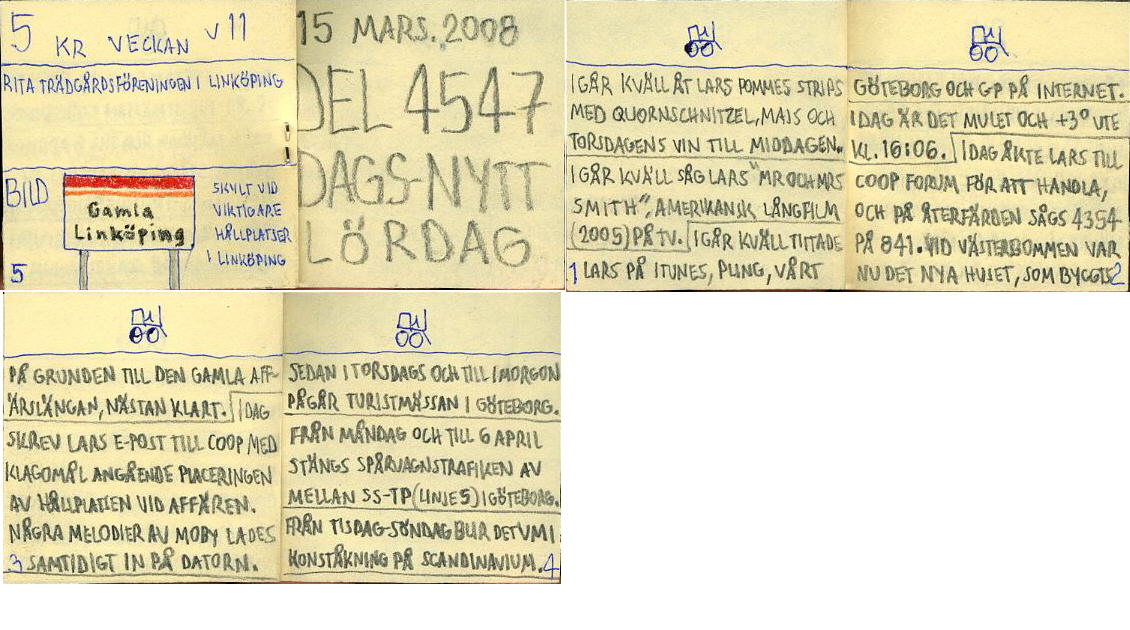 5 KR VECKAN V11
RITA TRÄDGÅRDSFÖRENINGEN I LINKÖPING
BILD
Gamla
Linköping
SKYLT VID
VIKTIGARE
HÅLLPLATSER
I LINKÖPING
5
15 MARS. 2008
DEL 4547
DAGS-NYTT
LÖRDAG
IGÅR KVÄLL ÅT LARS POMMES STRIPS
MED QUORNSCHNITZEL, MAJS OCH
TORSDAGENS VIN TILL MIDDAGEN.
IGÅR KVÄLL SÅG LARS "MR OCH MRS
SMITH", AMERIKANSK LÅNGFILM
(2005) PÅ TV. IGÅR KVÄLL TITTADE
1 LARS PÅ ITUNES, PLING, VÅRT
GÖTEBORG OCH GP PÅ INTERNET.
IDAG ÄR DET MULET OCH +3° UTE
KL. 16:06. IDAG ÅKTE LARS TILL
COOP FORUM FÖR ATT HANDLA,
OCH PÅ ÅTERFÄRDEN SÅGS 4354
PÅ 841. VID VÄSTERBOMMEN VAR
NU DET NYA HUSET, SOM BYGGTS 2
PÅ GRUNDEN TILL DEN GAMLA AFF-
ÄRSLÄNGAN, NÄSTAN KLART. IDAG
SKREV LARS E-POST TILL COOP MED
KLAGOMÅL ANGÅENDE PLACERINGEN
AV HÅLLPLATSEN VID AFFÄREN.
NÅGRA MELODIER AV MOBY LADES
3 SAMTIDIGT IN PÅ DATORN.
SEDAN I TORSDAGS OCH TILL IMORGON
PÅGÅR TURISTMÄSSAN I GÖTEBORG.
FRÅN MÅNDAG OCH TILL 6 APRIL
STÄNGS SPÅRVAGNSTRAFIKEN AV
MELLAN SS-TP (LINJE 5) I GÖTEBORG.
FRÅN TISDAG-SÖNDAG BLIR DET VM I
KONSTÅKNING PÅ SCANDINAVIUM. 4